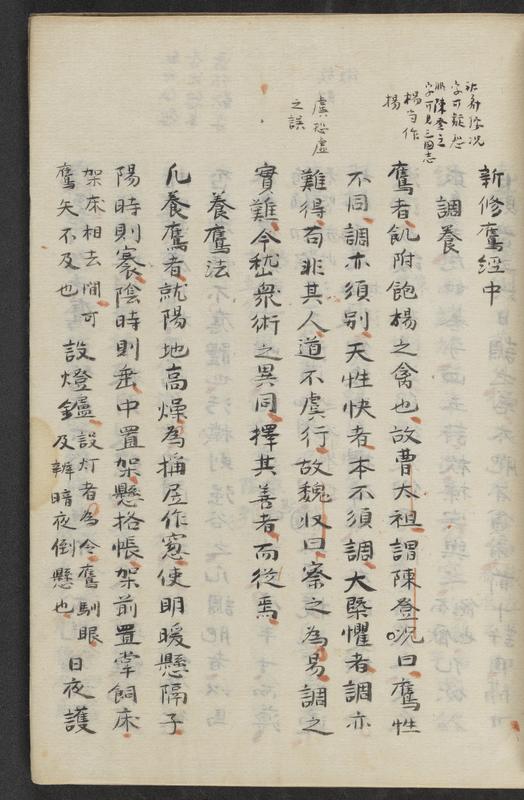 新修鷹經中
調養
鷹者飢附飽楊之禽也故曹太祖謂陳登况曰鷹性
不同調亦須別天性快者本不須調大槩懼者調亦
難得苟非其人道不虞行故魏收曰察之為易調之
實難今嵇衆術之異同擇其善者而從焉
養鷹法
凡養鷹者就陽地高燥為搆居作窓使明暖懸隔子
陽時則褰陰時則垂中置架懸挌帳架前置掌飼床
架床相去間可
鷹矢不及也
設燈鑪
設灯者為令鷹馴眼
及辨暗夜倒懸也
日夜護
字可疑恐
脱陳登之
字可見三國志
楊当作
揚
虞恐虚
之誤